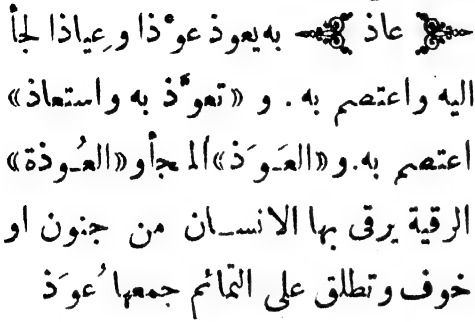 عاذ به يعوذ عوْذا وعِياذا لجأ
اليه واعتصم به . و «تعوَّذ به واستعاذ»
اعتصم به . و «العَـوَذ» الملجأ و «العُـوذة»
الرقية يرقى بها الانســان من جنون او
خوف وتطلق على التمائم جمعها عُوَذ